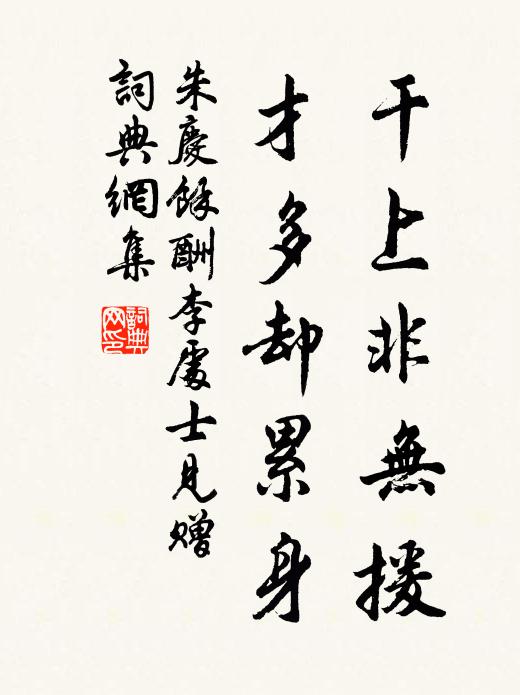 干上非無援
才多却累身
朱慶餘酬李處士見贈
詞典網集
詞典网印